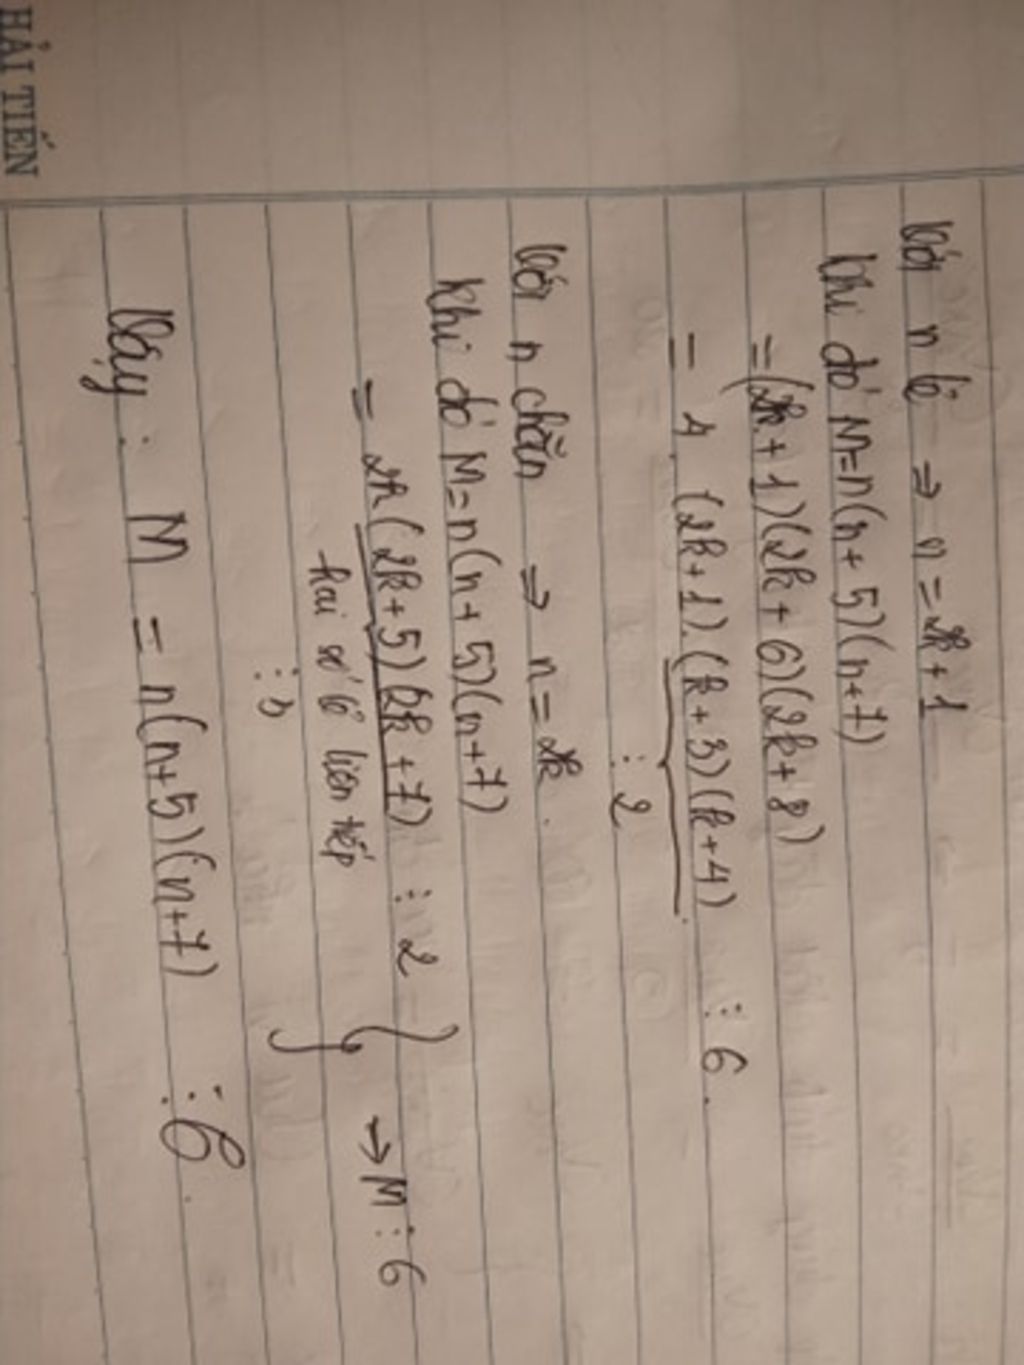 HẢI TIẾN
Với n lẻ ⇒ n = 2k+1
Khi đó M=n(n+5)(n+7)
=(2k+1)(2k+6)(2k+8)
= 4 (2k+1).(k+3)(k+4) ⋮ 6.
⋮ 2
Với n chẵn ⇒ n = 2k.
Khi đó M=n(n+5)(n+7)
= 2k(2k+5)(2k+7) ⋮ 2
hai số lẻ liên tiếp
⋮ 3
→ M ⋮ 6
Vậy : M = n(n+5)(n+7) ⋮ 6.